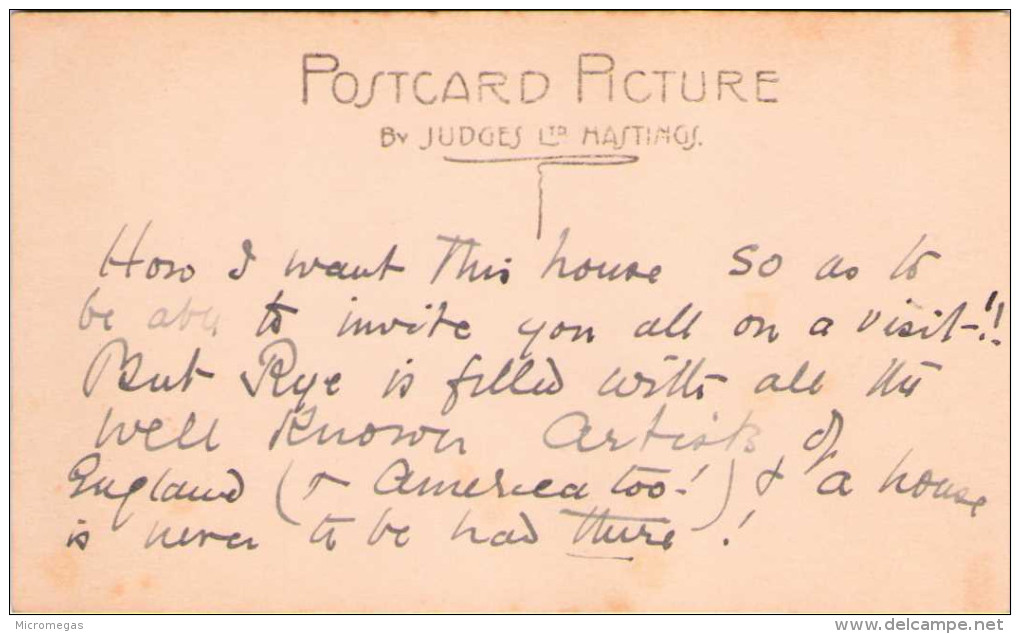 POSTCARD PICTURE
BY JUDGES LTD HASTINGS.
How I want this house so as to
be able to invite you all on a visit-!!
But Rye is filled with all the
well known Artists of
England (& America too-!) & a house
is never to be had there-!
Micromegas
www.delcampe.net